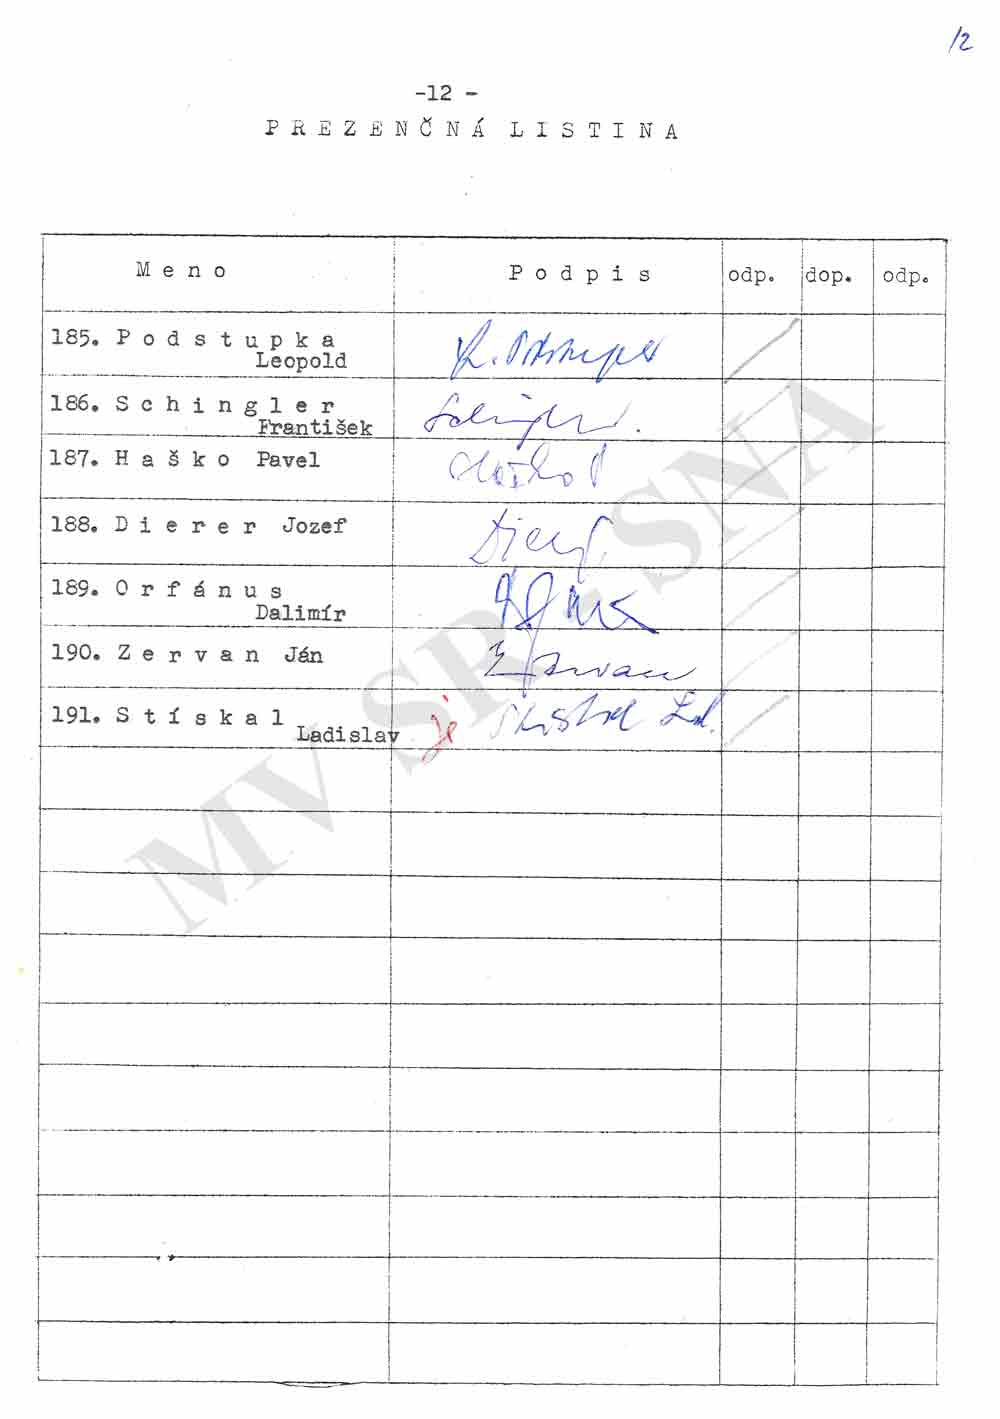 12
-12 -
PREZENČNÁ LISTINA
Meno Podpis odp. dop. odp.
185. Podstupka
Leopold
186. Schingler
František
187. Haško Pavel
188. Dierer Jozef
189. Orfánus
Dalimír
190. Zervan Ján
191. Stískal
Ladislav je
MV SR - SNA